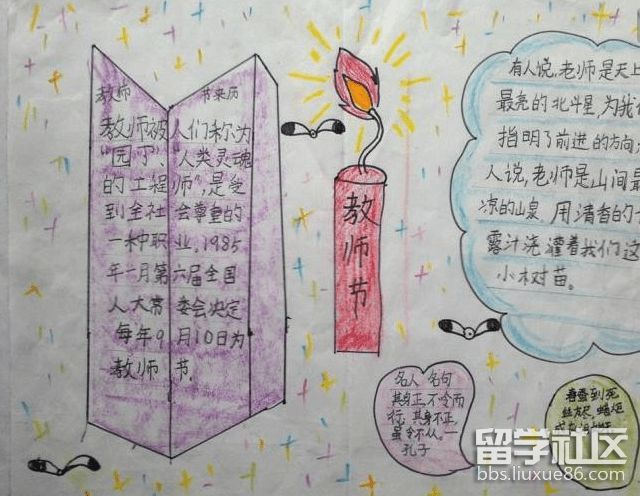 教师 节来历
教师被人们称为
"园丁"、"人类灵魂
的工程师",是受
到全社会尊重的
一种职业,1985
年一月第六届全国
人大常委会决定
每年9月10日为
教师节.
教师节
有人说,老师是天上
最亮的北斗星,为我们
指明了前进的方向,
人说,老师是山间
凉的山泉,用清香的
露汁浇灌着我们这
小树苗。
名人名句
其身正,不令而
行;其身不正,
虽令不从。一
孔子
春蚕到死
丝方尽 蜡炬
留学社区
bbs.liuxue86.com